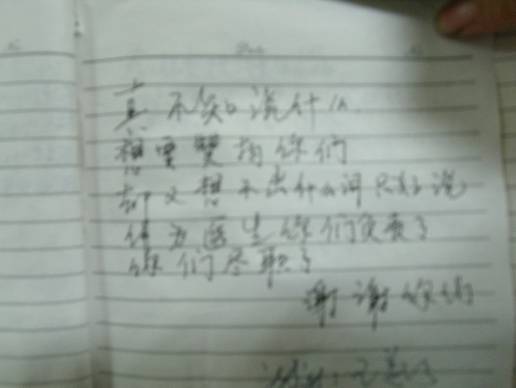 真不知说什么
想要赞扬你们
却又想不出什么词只好说
作为医生你们负责了
你们尽职了
谢谢你们